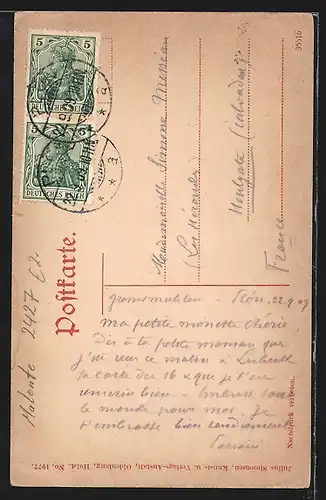 5 5
DEUTSCHES REICH
5 5
DEUTSCHES REICH
35516
Postkarte.
Mademoiselle Simone
(Les
Houlgate (Calvados)
France
Malente 2427
Gremsmühlen - Plön. 22.9.09
ma petite minette chérie,
Dis à la petite maman que
j'ai reçu ce matin à Lubeck
sa carte du 16 & que je l'en
remercie bien - Embrasse tout
le monde pour moi. Je
t'embrasse bien tendrement
Parrain
Nachdruck verboten.
Julius Simonsen, Kunst- u. Verlags-Anstalt, Oldenburg, Holst. No. 1977.